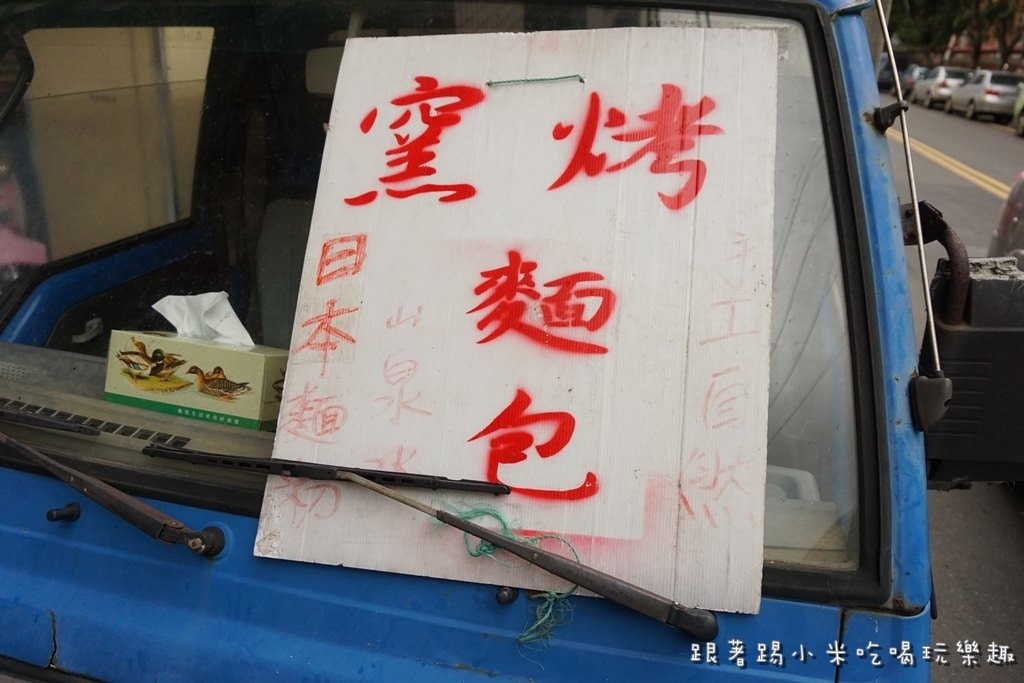 窯烤
麵
包
日本麵粉
山泉水
手工自然
跟著踢小米吃喝玩樂趣